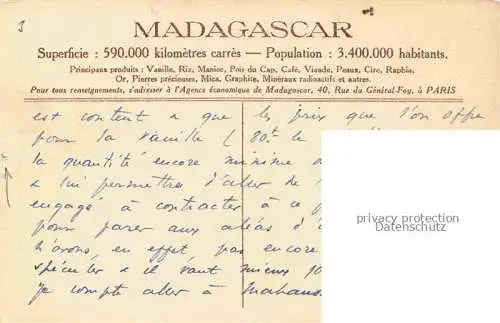 3
MADAGASCAR
Superficie : 590.000 kilomètres carrés — Population : 3.400.000 habitants.
Principaux produits : Vanille, Riz, Manioc, Pois du Cap, Café, Viande, Peaux, Cire, Raphia,
Or, Pierres précieuses, Mica, Graphite, Minéraux radioactifs et autres.
Pour tous renseignements, s'adresser à l'Agence économique de Madagascar, 40, Rue du Général-Foy, à PARIS
est content & que les prix que l'on offre
pour la vanille ( 80f. le
la quantité encore minime
& lui permettre d'aller de
engagé à contracter à ce
pour parer aux aléas d'
n'avons en effet pas encore
spéculer & il vaut mieux
je compte aller à
privacy protection
Datenschutz